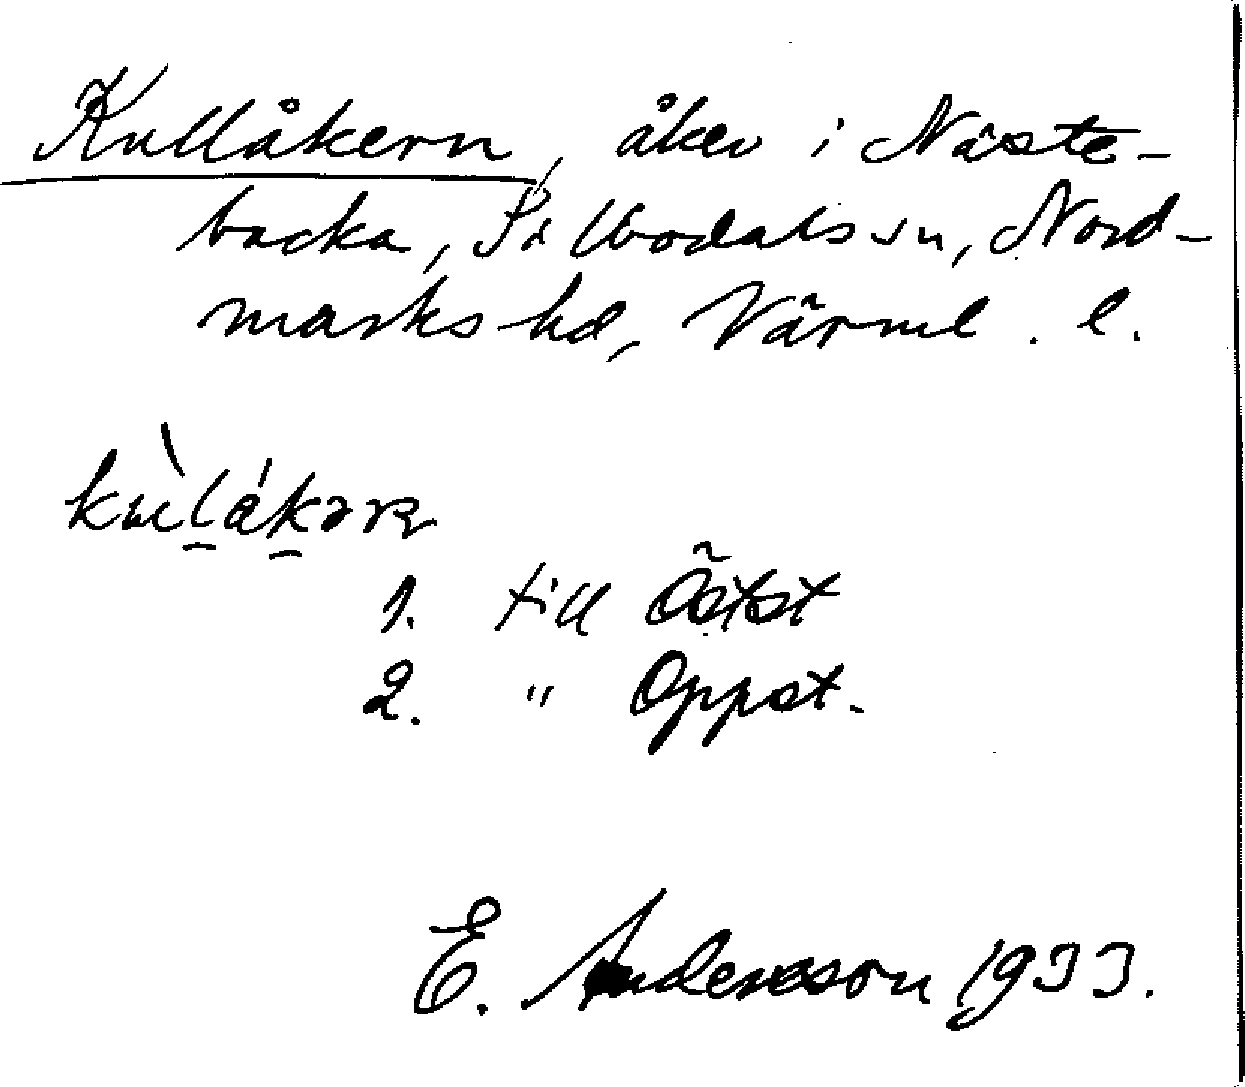 Kullåkern, åker i Näste-
backa, Sillbodals sn, Nord-
marks hd, Värml. l.
1. till Östst
2. " Oppst.
E. Andersson 1933.